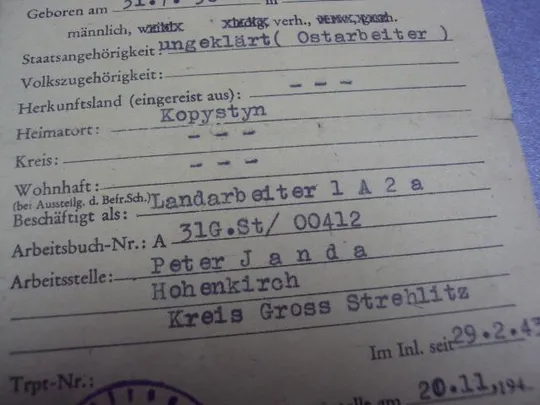 Geboren am 31.7. in
männlich, verh.,
Staatsangehörigkeit: ungeklärt( Ostarbeiter )
Volkszugehörigkeit:
Herkunftsland (eingereist aus): - - -
Heimatort: Kopystyn
Kreis: - - -
Wohnhaft: - - -
(bei Ausstellg. d. Befr.Sch.)
Beschäftigt als: Landarbeiter 1 A 2 a
Arbeitsbuch-Nr.: A 31G.St/ 00412
Arbeitsstelle: Peter J a n d a
Hohenkirch
Kreis Gross Strehlitz
Im Inl. seit 29.2.43
Trpt-Nr.:
am 20.11.194